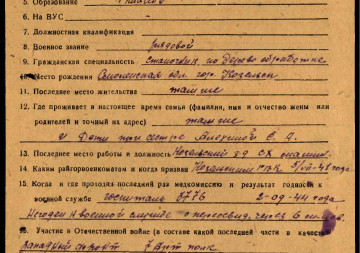 5. Образование
6. На ВУС –
7. Должностная квалификация
8. Военное звание рядовой
9. Гражданская специальность Станочник по дерево обработке
10. Место рождения Смоленская обл. гор. Козельск
11. Последнее место жительства там же
12. Где проживает в настоящее время семья (фамилия, имя и отчество жены или
родителей и точный их адрес) там же
13. Последнее место работы и должность Козельский з-д СХ машин
14. Каким райгорвоенкоматом и когда призван Козельским РВК 5/VII-41 года
15. Когда и где проходил последний раз медкомиссию и результат годности к
военной службе госпиталь 2-09-44 года
Негоден к военной службе с переосвид. через 6
16. Участие в Отечественной войне (в составе какой последней части в качестве
Западный фронт 7 полк